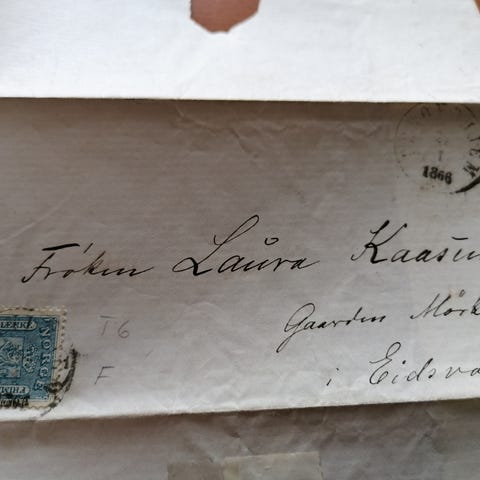 1868
Frøken Laura Kaasu
Gaarden Mørk
i Eidsvo
T6
F
NORGE